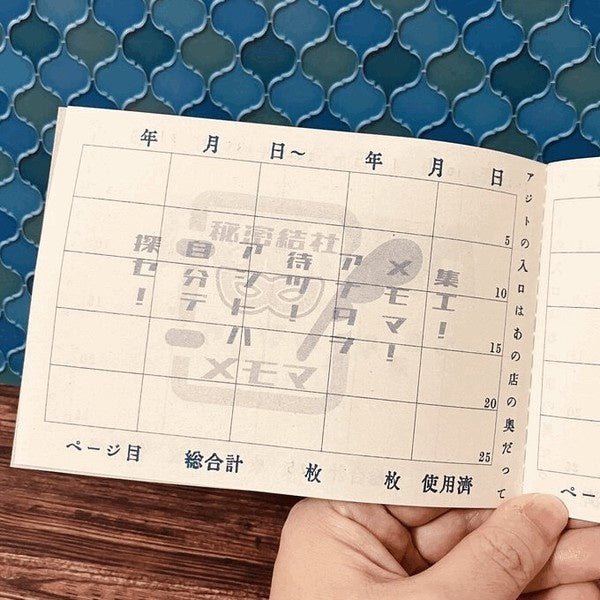 年 月 日～ 年 月 日
秘密結社
メモマ
集エ!
メモマ!
アナタヲ
待ツ!
アジトハ
自分デ
探セ!
5
10
15
20
25
ページ目 総合計 枚 枚 使用済
アジトの入口はあの店の奥だって
ペー